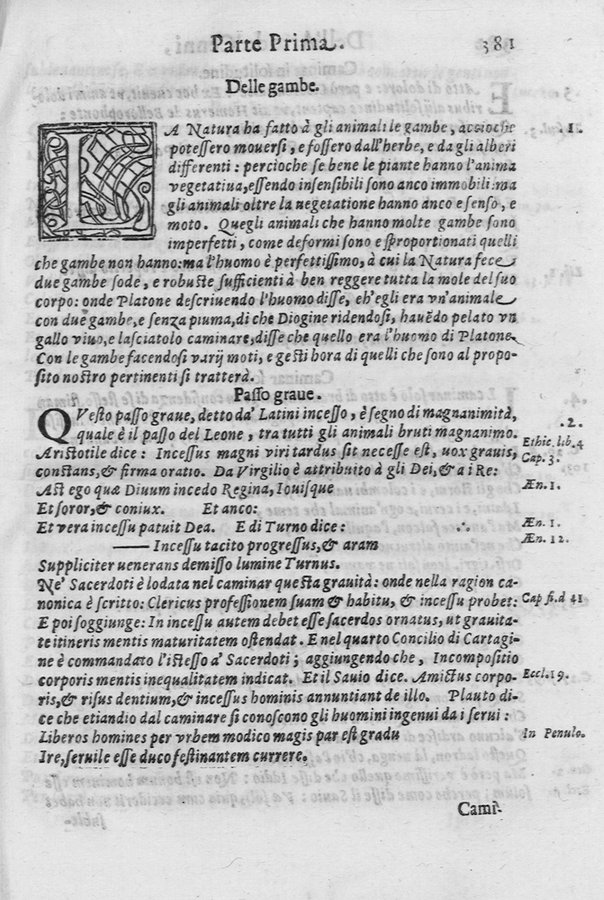 Parte Prima. 381
Delle gambe.
LA Natura ha fatto à gli animali le gambe, acciochè 1.
potessero mouersi, e fossero dall'herbe, e da gli alberi
differenti: percioche se bene le piante hanno l'anima
vegetatiua, essendo insensibili sono anco immobili: ma
gli animali oltre la uegetatione hanno anco e senso, e
moto. Quegli animali che hanno molte gambe sono
imperfetti, come deformi sono e sproportionati quelli
che gambe non hanno: ma l'huomo è perfettissimo, à cui la Natura fece
due gambe sode, e robuste sufficienti à ben reggere tutta la mole del suo
corpo: onde Platone descriuendo l'huomo disse, ch'egli era vn'animale
con due gambe, e senza piuma, di che Diogine ridendosi, hauēdo pelato vn
gallo viuo, e lasciatolo caminare, disse che quello era l'huomo di Platone.
Con le gambe facendosi varij moti, e gesti hora di quelli che sono al propo-
sito nostro pertinenti si tratterà.
Passo graue.
QVesto passo graue, detto da' Latini incesso, è segno di magnanimità, 2.
quale è il passo del Leone, tra tutti gli animali bruti magnanimo.
Aristotile dice: Incessus magni viri tardus sit necesse est, uox grauis, Ethic. lib. 4
constans, & firma oratio. Da Virgilio è attribuito à gli Dei, & a i Re: Cap. 3.
Ast ego quæ Diuum incedo Regina, Iouisque Æn. 1.
Et soror, & coniux. Et anco:
Et vera incessu patuit Dea. E di Turno dice: Æn. 1.
—— Incessu tacito progressus, & aram Æn. 12.
Suppliciter uenerans demisso lumine Turnus.
Ne' Sacerdoti è lodata nel caminar questa grauità: onde nella ragion ca-
nonica è scritto: Clericus professionem suam & habitu, & incessu probet: Cap. fi. d 41
E poi soggiunge: In incessu autem debet esse sacerdos ornatus, ut grauita-
te itineris mentis maturitatem ostendat. E nel quarto Concilio di Cartagi-
ne è commandato l'istesso a' Sacerdoti; aggiungendo che, Incompositio
corporis mentis inequalitatem indicat. Et il Sauio dice. Amictus corpo- Eccl. 19.
ris, & risus dentium, & incessus hominis annuntiant de illo. Plauto di-
ce che etiandio dal caminare si conoscono gli huomini ingenui da i serui:
Liberos homines per vrbem modico magis par est gradu In Penulo.
Ire, seruile esse duco festinantem currere.
Cami-